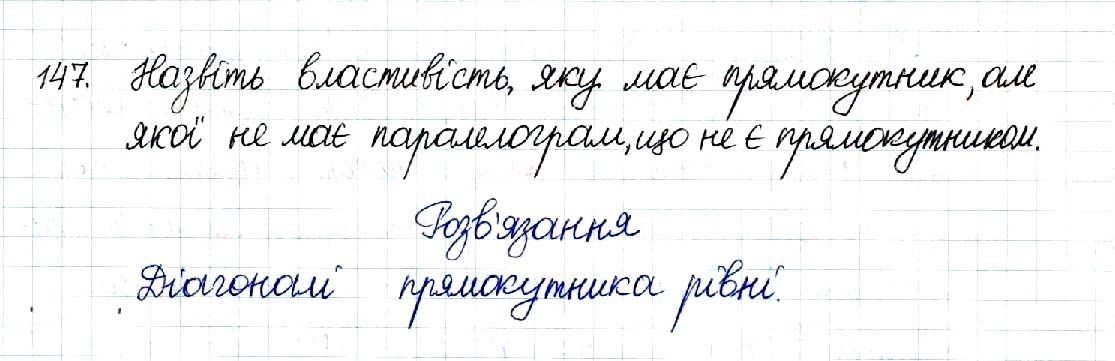 147. Назвіть властивість, яку має прямокутник, але
якої не має паралелограм, що не є прямокутником.
Розв'язання
Діагоналі прямокутника рівні.